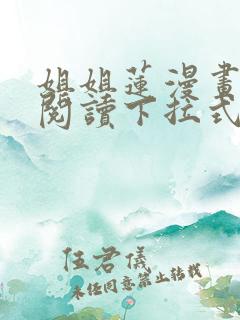 姐姐蓮漫畫
閱讀下拉式
任君儀
未經同意禁止轉載